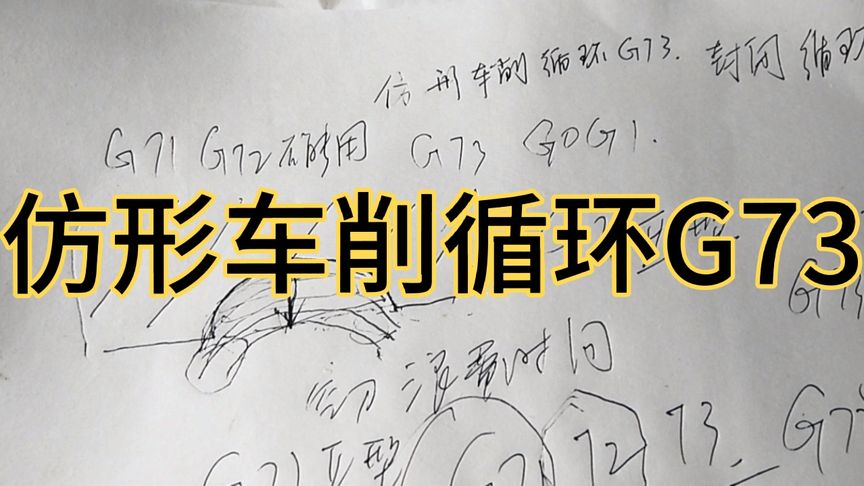 仿形车削循环G73. 封闭循环
G71 G72不能用 G73 G0G1.
仿形车削循环G73
空刀 浪费时间
G71 Ⅱ型 G71 72 73 G7